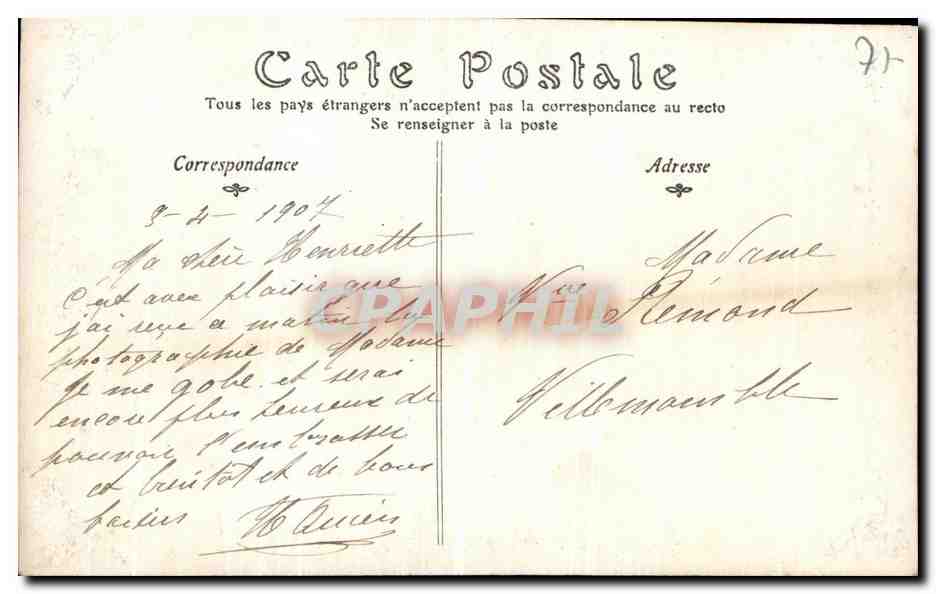 Carte Postale
71-
Tous les pays étrangers n'acceptent pas la correspondance au recto
Se renseigner à la poste
Correspondance
3-4-1907
Ma chère Henriette
C'est avec plaisir que
j'ai reçu ce matin la
photographie de Madame
Je me gobe. et serai
encore plus heureux de
pouvoir t'embrasser
et bientôt et de bons
baisers
Adresse
Madame
Vve Rémond
Villemomble
CPAPHIL